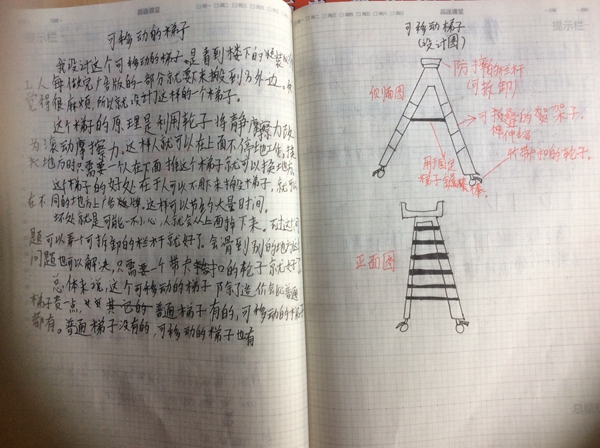 可移动的梯子
我设计这个可移动的梯子,是看到楼下的
工人每做完广告版的一部分就要下来搬到另外边,
觉得很麻烦,所以就设计了这样的一个梯子。
这个梯子的原理是利用轮子将静摩擦力改
为滚动摩擦力。这样人就可以在上面不停地工作。换
地方时只需要一个人在下面推这个梯子就可以换地方
这个梯子的好处在于人可以不用下来搬这梯子,就可以
在不同的地方上广告版牌。这样可以节省大量时间。
坏处就是可能一不小心,人就会从上面掉下来。
题可以弄个可拆卸的栏木干就好了。会滑到别的地方
问题也可以解决,只需要一个带卡扣的轮子就好了
总体来说,这个可移动的梯子除了造价会比普通
梯子贵一点,其它的普通梯子有的,可移动的梯子
都有。普通梯子没有的,可移动的梯子也有
可移动梯子
(设计图)
侧面图
防摔的栏杆
(可拆卸)
可折叠的架子.
伸缩
带卡扣的轮子.
用固定
梯子的棒.
正面图